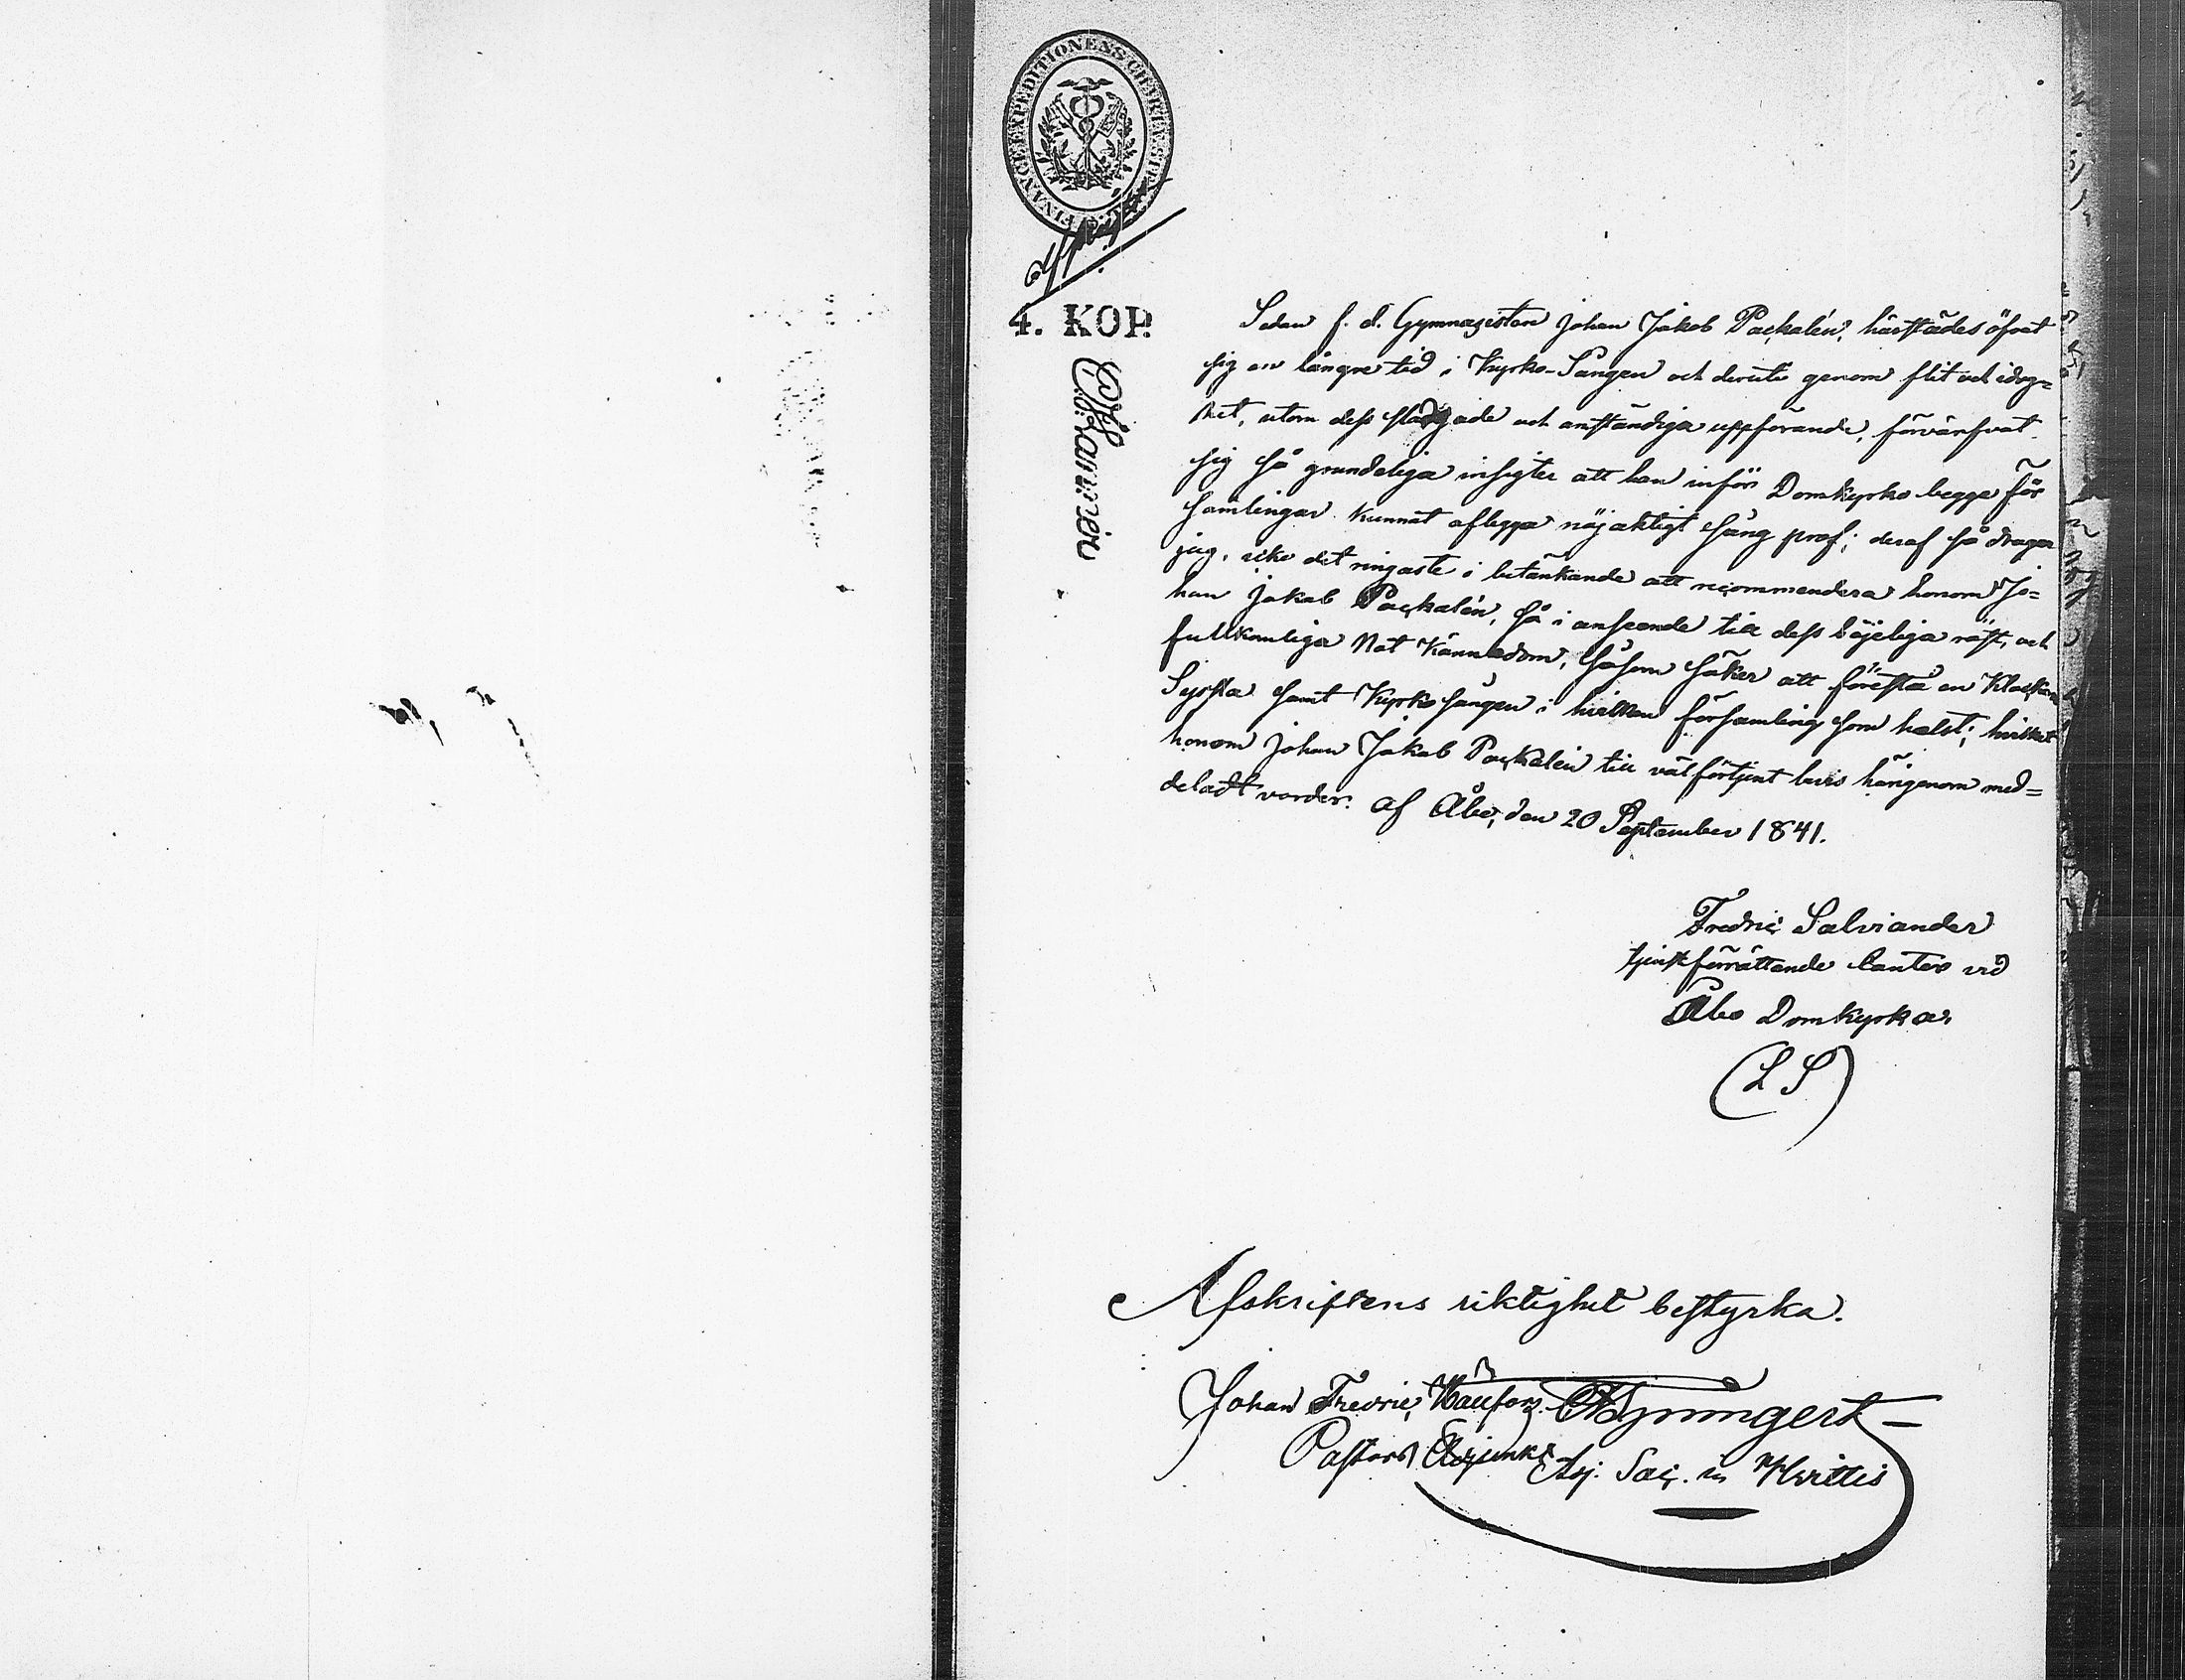 FINANCE EXPEDITIONENS CHARTÆ
4. KOP.
Sedan f. d. Gymnasisten Johan Jakob Packalén, härstädes öfvat
sig en längre tid i Kyrko-Sången och deruti genom flit och idog=
het, utom dess stadgade och anständiga uppförande, förvärfvat
sig så grundeliga insigter att han inför Domkyrko begge för
samlingar kunnat aflegga nöjaktigt sång prof; deraf så drager
jag, icke det ringaste i betänkande att recommendera honom Jo=
han Jakob Packalén, så i anseende till dess böjeliga röst, och
fullkomliga Not kännedom, såsom säker att förestå en Klockare
Syssla samt Kyrko sången i hvilken församling som helst; hvilket
honom Johan Jakob Packalén till välförtjent bevis härigenom med=
deladt varder. Af Åbo, den 20 September 1841.
Fredric Salviander
tjenstförrättande Cantor vid
Åbo Domkyrka.
(L S)
Afskriftens riktighet bestyrka.
Johan Fredric
Pastors Adjunkt
Adj. Sac. in Hvittis